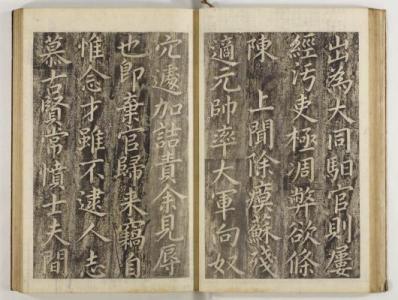 出為大同駔官則屢
經污吏極凋弊欲條
陳 上聞除瘼蘇殘
適元帥率大軍向奴
穴遽加詰責余見辱
也即棄官歸来竊自
惟念才雖不逮人志
慕古賢常憤士夫間